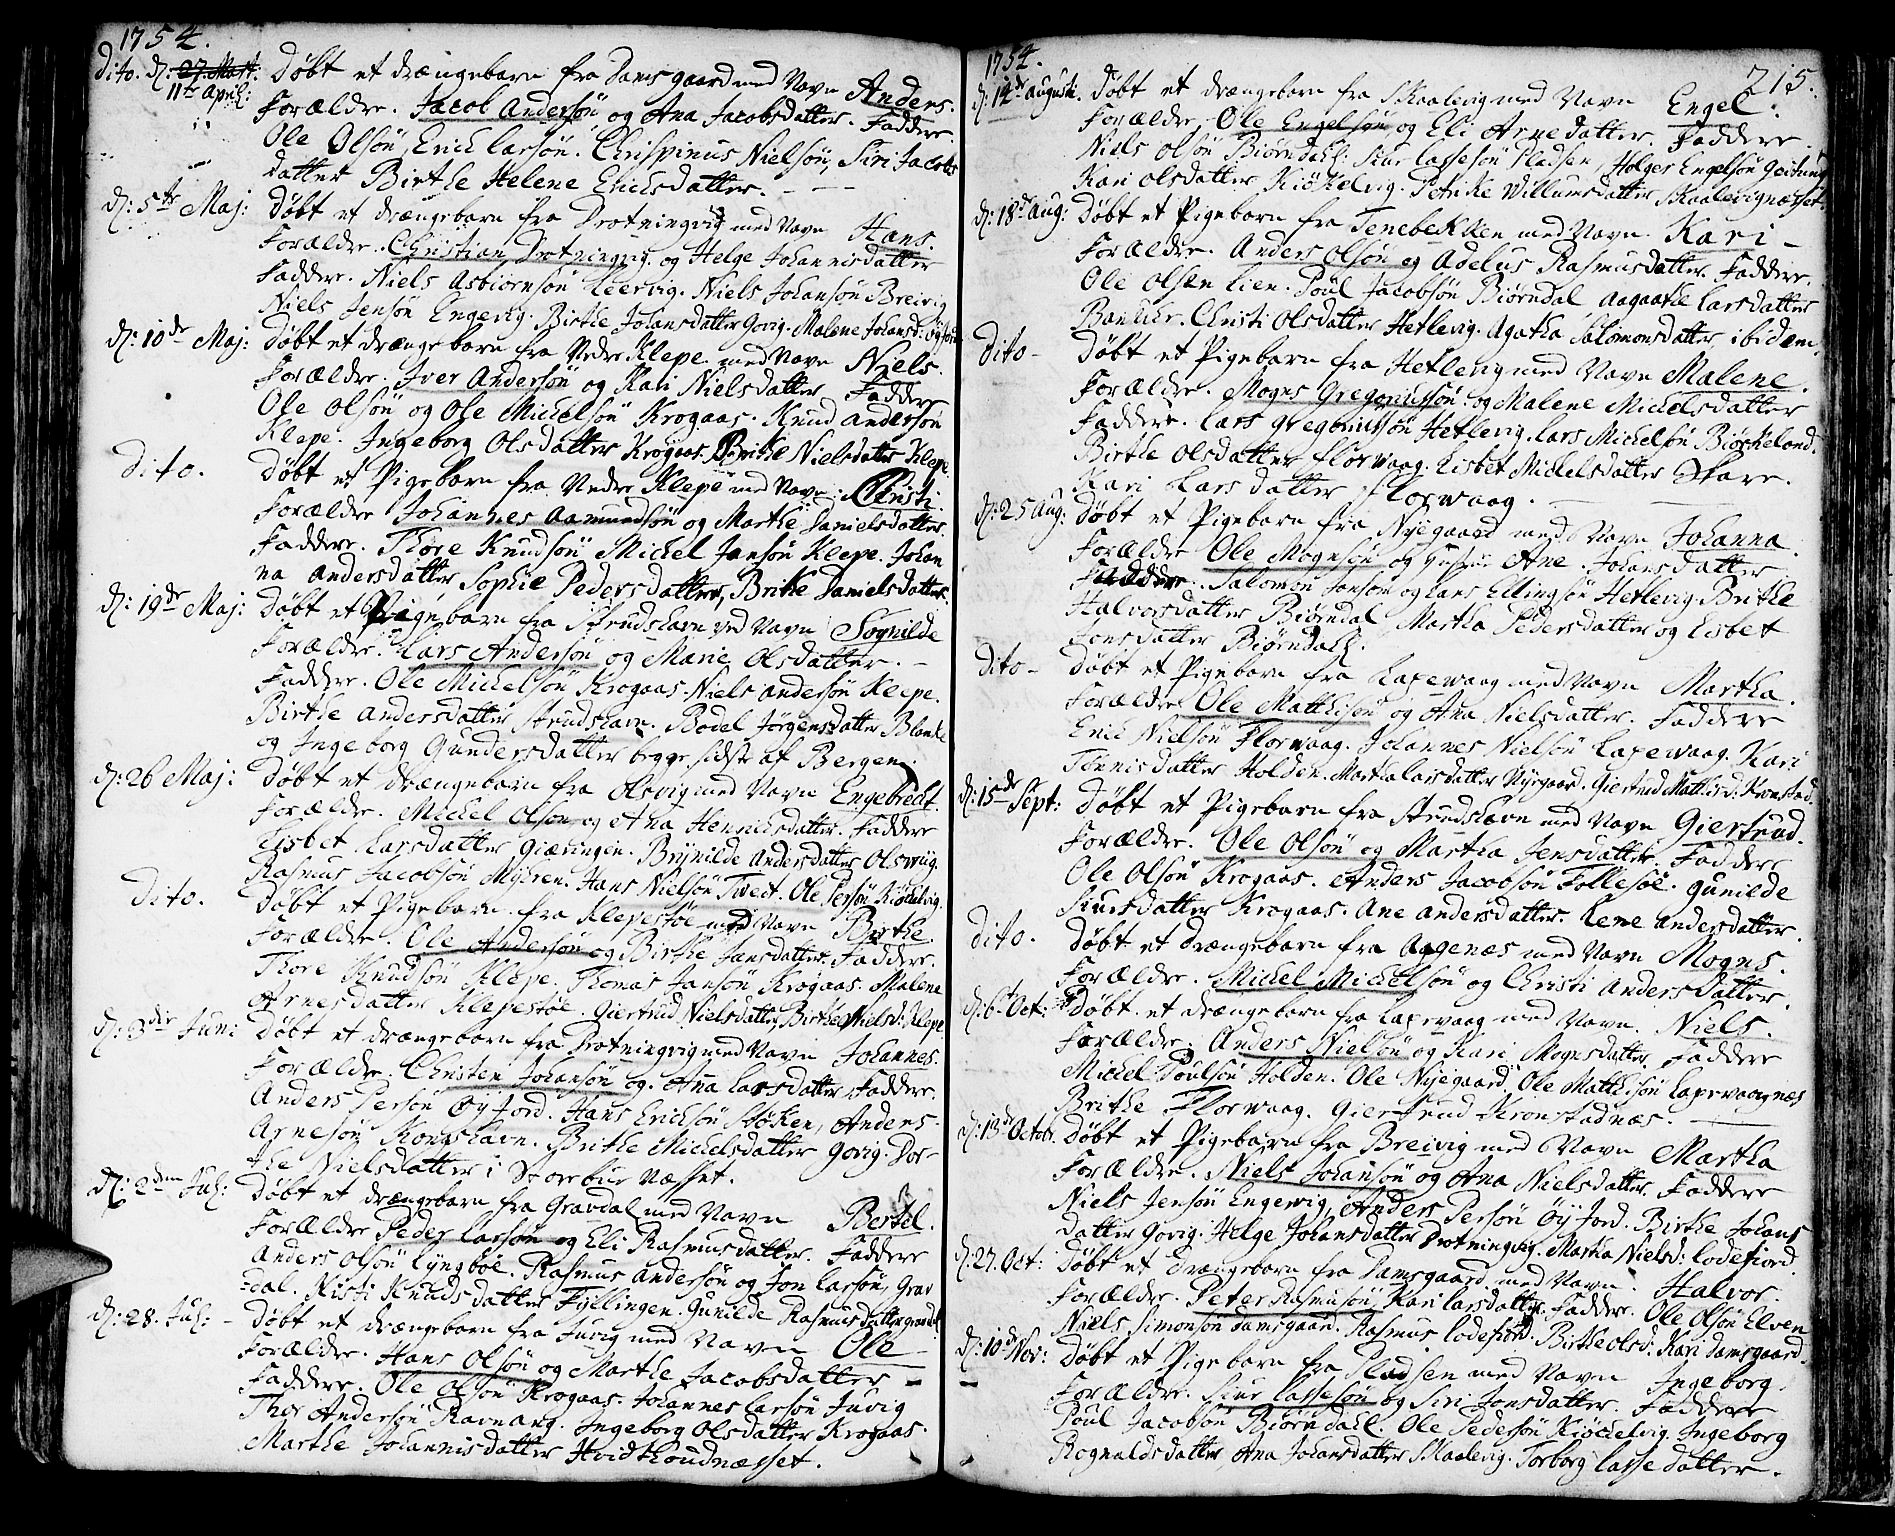 1754.
Dito. d: 27 Mart. Døbt et drængebarn fra Damsgaard med Navn Anders.
11te April: Forældre. Jacob Andersøn og Ana Jacobsdatter. Faddere
Ole Olsøn, Erich Larsøn. Chrispinus Nielsøn, Siri Jacobs
datter Birthe Helene Erichsdatter.
d: 5te Maj: Døbt et drængebarn fra Drotningvig med Navn Hans.
Forældre. Christian Drotningvig. og Helge Johannisdatter
Faddere. Niels Asbiørnsøn Leervig. Niels Johansøn Breivig
Niels Jensøn Engevig. Birthe Johansdatter Govig. Malene Johansd: Øyjord
d: 10de Maj: Døbt et drængebarn fra Nedre Klepe med Navn Niels.
Forældre. Iver Andersøn og Kari Nielsdatter Faddere
Ole Olsøn og Ole Michelsøn Krogaas. Knud Andersøn
Klepe. Ingeborg Olsdatter Krogaas. Birthe Nielsdatter Klepe.
Dito. Døbt et Pigebarn fra Nedre Klepe med Navn: Christi.
Forældre Johannes Aamundsøn og Marthe Danielsdatter.
Faddere. Thore Knudsøn Michel Jansøn Klepe. Johan
na Andersdatter Sophie Pedersdatter, Brithe Danielsdatter.
d: 19de Maj: Døbt et Pigebarn fra Strudshavn ved Navn Sognilde
Forældre. Lars Andersøn og Marie Olsdatter.
Faddere. Ole Michelsøn Krogaas. Niels Andersøn Klepe.
Birthe Andersdatter Strudshavn. Bodel Jørgensdatter Blanke
og Ingeborg Gundersdatter begge sidste af Bergen.
d: 26 Maj: Døbt et drængebarn fra Olsvig med Navn Engebrecht.
Forældre. Michel Olsøn og Ana Henrichsdatter. Faddere
Lisbet Larsdatter Giæringen. Brynilde Andersdatter Olsvig.
Rasmus Jacobsøn Myhren. Hans Nielsøn Tveit. Ole Persøn Kiøkelvig.
Dito. Døbt et Pigebarn fra Klepestøe med Navn Birthe.
Forældre. Ole Andersøn og Birthe Jansdatter. Faddere.
Thore Knudsøn Klepe. Thomas Jansøn Krogaas. Malena
Arnesdatter Klepestøe. Giertrud Nielsdatter, Birthe Nielsd: Klepe.
d: 3die Jun: Døbt et drængebarn fra Drotningvig med Navn Johannes.
Forældre. Christen Johansøn og Ana Larsdatter, Faddere.
Anders Persøn Øyjord. Hans Erichsøn Støken, Anders
Arnesøn Kongshavn. Brithe Michelsdatter Govig. Dor-
the Nielsdatter i Storebue Næsset.
d: 2den Jul: Døbt et drængebarn fra Gravdal med Navn Bertel.
Forældre Peder Larsøn og Eli Rasmusdatter. Faddere
Anders Olsøn Lyngbøe. Rasmus Andersøn og Jon Larsøn, Grav
=dal. Kisti Knudsdatter Fyllingen. Gunilde Rasmusdatter gravdal.
d: 28. Jul: Døbt et drængebarn fra Juvig med Navn Ole
Forældre. Hans Olsøn og Marthe Jacobsdatter
Faddere. Ole Olsøn Krogaas. Johannes Larsøn Juvig
Thor Andersøn Ravnang. Ingeborg Olsdatter Krogaas.
Marthe Johannisdatter Hvidthoudnæsset.
1754. 215.
d: 14de Augusti. Døbt et drængebarn fra Skaalevig med Navn Engel.
Forældre. Ole Engelsøn og Eli Arnedatter. Faddere.
Niels Olsøn Biørndahl. Siur Lassesøn Pladsen, Holger Engelsøn
Kari Olsdatter Kiøkelvig. Petrike Willumsdatter Skaalevignæsset.
d: 18de Aug: Døbt et Pigebarn fra Tenebekken med Navn. Kari
Forældre. Anders Olsøn og Adelus Rasmusdatter. Faddere.
Ole Olsen Lien. Poul Jacobsøn Biørndal Aagaathe Larsdatter
Christi Olsdatter Hetlevig. Agatha Salomonsdatter ibidem.
Dito Døbt et Pigebarn fra Hetlevig med Navn Malene.
Forældre. Mogns Gregoriussøn og Malene Michelsdatter
Faddere. Lars Gregoriussøn Hetlevig. Lars Michelsøn Biørkeland.
Birthe Olsdatter Florvaag. Lisbet Michelsdatter Skare.
Kari Larsdatter Florvaag.
d: 25 Aug: Døbt et Pigebarn fra Nyegaard med Navn Johanna.
Forældre Ole Mognsøn og Ane Johansdatter
Faddere. Salomon Jonsøn og Lars Ellingsøn Hetlevig. Brithe
Halvorsdatter Biørndal Martha Pedersdatter og Lisbet
Jonsdatter Biørndahl.
Dito Døbt et Pigebarn fra Laxevaag med Navn Martha.
Forældre Ole Matthisøn og Ana Nielsdatter. Faddere
Erich Nielsøn Florvaag. Johannes Nielsøn Laxevaag. Kari
Tønnisdatter Holden. Martha Larsdatter Nyegaard. Giertrud Mathisd: Kronstad.
d: 15de Sept: Døbt et Pigebarn fra Strudshavn med Navn Giertrud.
Forældre. Ole Olsøn og Martha Jensdatter. Faddere
Ole Olsøn Krogaas. Anders Jacobsøn Follesøe. Gunilde
Siursdatter Krogaas. Ane Andersdatter. Lene Andersdatter.
Dito. Døbt et drængebarn fra Aagenæs med Navn Mogns.
Forældre. Michel Michelsøn og Christi Andersdatter.
d: 6te Oct: Døbt et drængebarn fra Laxevaag med Navn. Niels.
Forældre. Anders Nielsøn og Kari Mognsdatter. Faddere
Michel Poulsøn Holden. Ole Nyegaard. Ole Matthisøn Laxevaagnæs
Brithe Florvaag. Giertrud Kronstadnæs.
d: 13de Octobr. Døbt et Pigebarn fra Breivig med Navn Martha
Forældre. Niels Johansøn og Ana Nielsdatter. Faddere
Niels Jensøn Engevig. Anders Persøn Øyjord. Birthe Johans
datter Govig. Helge Johansdatter Drotningvig. Martha Nielsd: Lodefiord.
d: 27. Oct: Døbt et drængebarn fra Damsgaard med Navn. Halvor.
Forældre. Peter Rasmusøn, Kari Larsdatter. Faddere. Ole Olsøn Elven
Niels Simonsøn Damsgaard. Rasmus Lodefiord. Birthe Olsd: Kari Damsgaard.
d: 10de Nov: Døbt et Pigebarn fra Pladsen med Navn Ingeborg.
Forældre. Siur Lassesøn og Siri Jonsdatter. Faddere
Poul Jacobsøn Biørndahl. Ole Pedersøn Kiøchelvig. Ingeborg
Rognaldsdatter, Ana Johansdatter Skaalevig. Torborg Lassedatter.